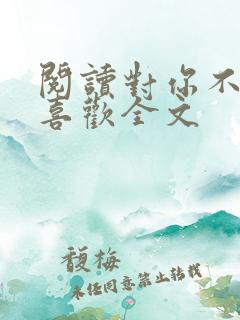 閱讀對你不
喜歡全文
馥梅
未任同意禁止轉載